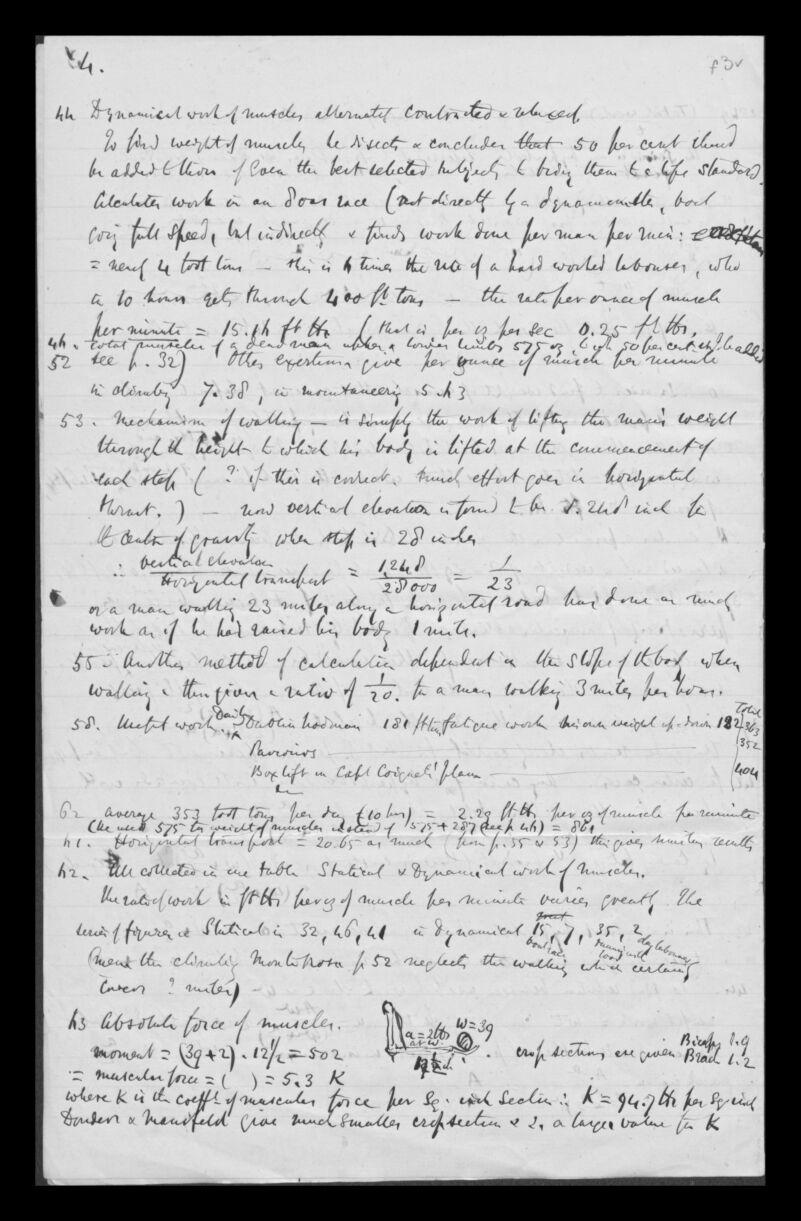 4.
f3v
44 Dynamical work of muscles alternately contracted & relaxed.
To find weight of muscles he disects & concludes that 50 per cent should
be added to those of Even the best selected subjects to bring them to a life standard.
Calculates work in an 8 oar race (not directly by a dynamometer, boat
going full speed, but indirectly & finds work done per man per min:
= nearly 4 foot tons — this is 6 times the rate of a hard worked labourer, who
in 10 hours gets through 400 ft tons — the rate per ounce of muscle
per minute = 15. ft lbs. (that is per oz per sec 0.25 ft lbs.
46. total muscles of a dead man upper & lower limbs 575 oz. to wh 50 per cent shd be added
52 see p. 32) Other exertions give per ounce of muscle per minute
in climbing 7.38, in mountaineering 5.63
53. Mechanism of walking — is simply the work of lifting the man's weight
through the height to which his body is lifted at the commencement of
each step ( ? if this is correct. much effort goes in horizontal
thrust. ) — now vertical elevation is found to be 1.248 inch for
the centre of gravity when step is 28 inches
∴ vertical elevation / Horizontal transport = 1.248 / 28000 = 1 / 23
or a man walking 23 miles along a horizontal road has done as much
work as if he had raised his body 1 mile.
55. Another method of calculation dependent on the slope of the body when
walking & then gives a ratio of 1/20. for a man walking 3 miles per hour.
Total
58. Useful work. Daily Dublin hodman 181 ft tons fatigue work his own weight up & down 182 363
Paviours 352
Box lift in Capt Coignet's plan 404
62 average 353 foot tons per day (10 hrs) = 2.29 ft lbs per oz of muscle per minute
(he used 575 for weight of muscles instead of 575 + 287 (see p 46) = 861
61. Horizontal transport = 20.65 as much (from p. 55 & 53) this gives similar results
62. All collected in one table Statical & Dynamical work of muscles.
The rate of work in ft lbs per oz of muscle per minute varies greatly. The
series of figures in Statical is 32, 46, 41 in dynamical 15, 7, 35, 2
boat race day labourer
(mem the climbing Monte Rosa p 52 neglects the walking which certainly
covers ? miles)
63 Absolute force of muscles.
a = 2 lbs
W = 39
moment = (39+2) . 12 1/2 = 502
cross sections are given Biceps 1.9
Brach 1.2
= muscular force = ( ) = 5.3 K
where K is the coefft of muscular force per Sq. inch Section ∴ K = 94.7 lbs per Sq inch
Donders & Mansfeld give much smaller cross section & ∴ a larger value for K